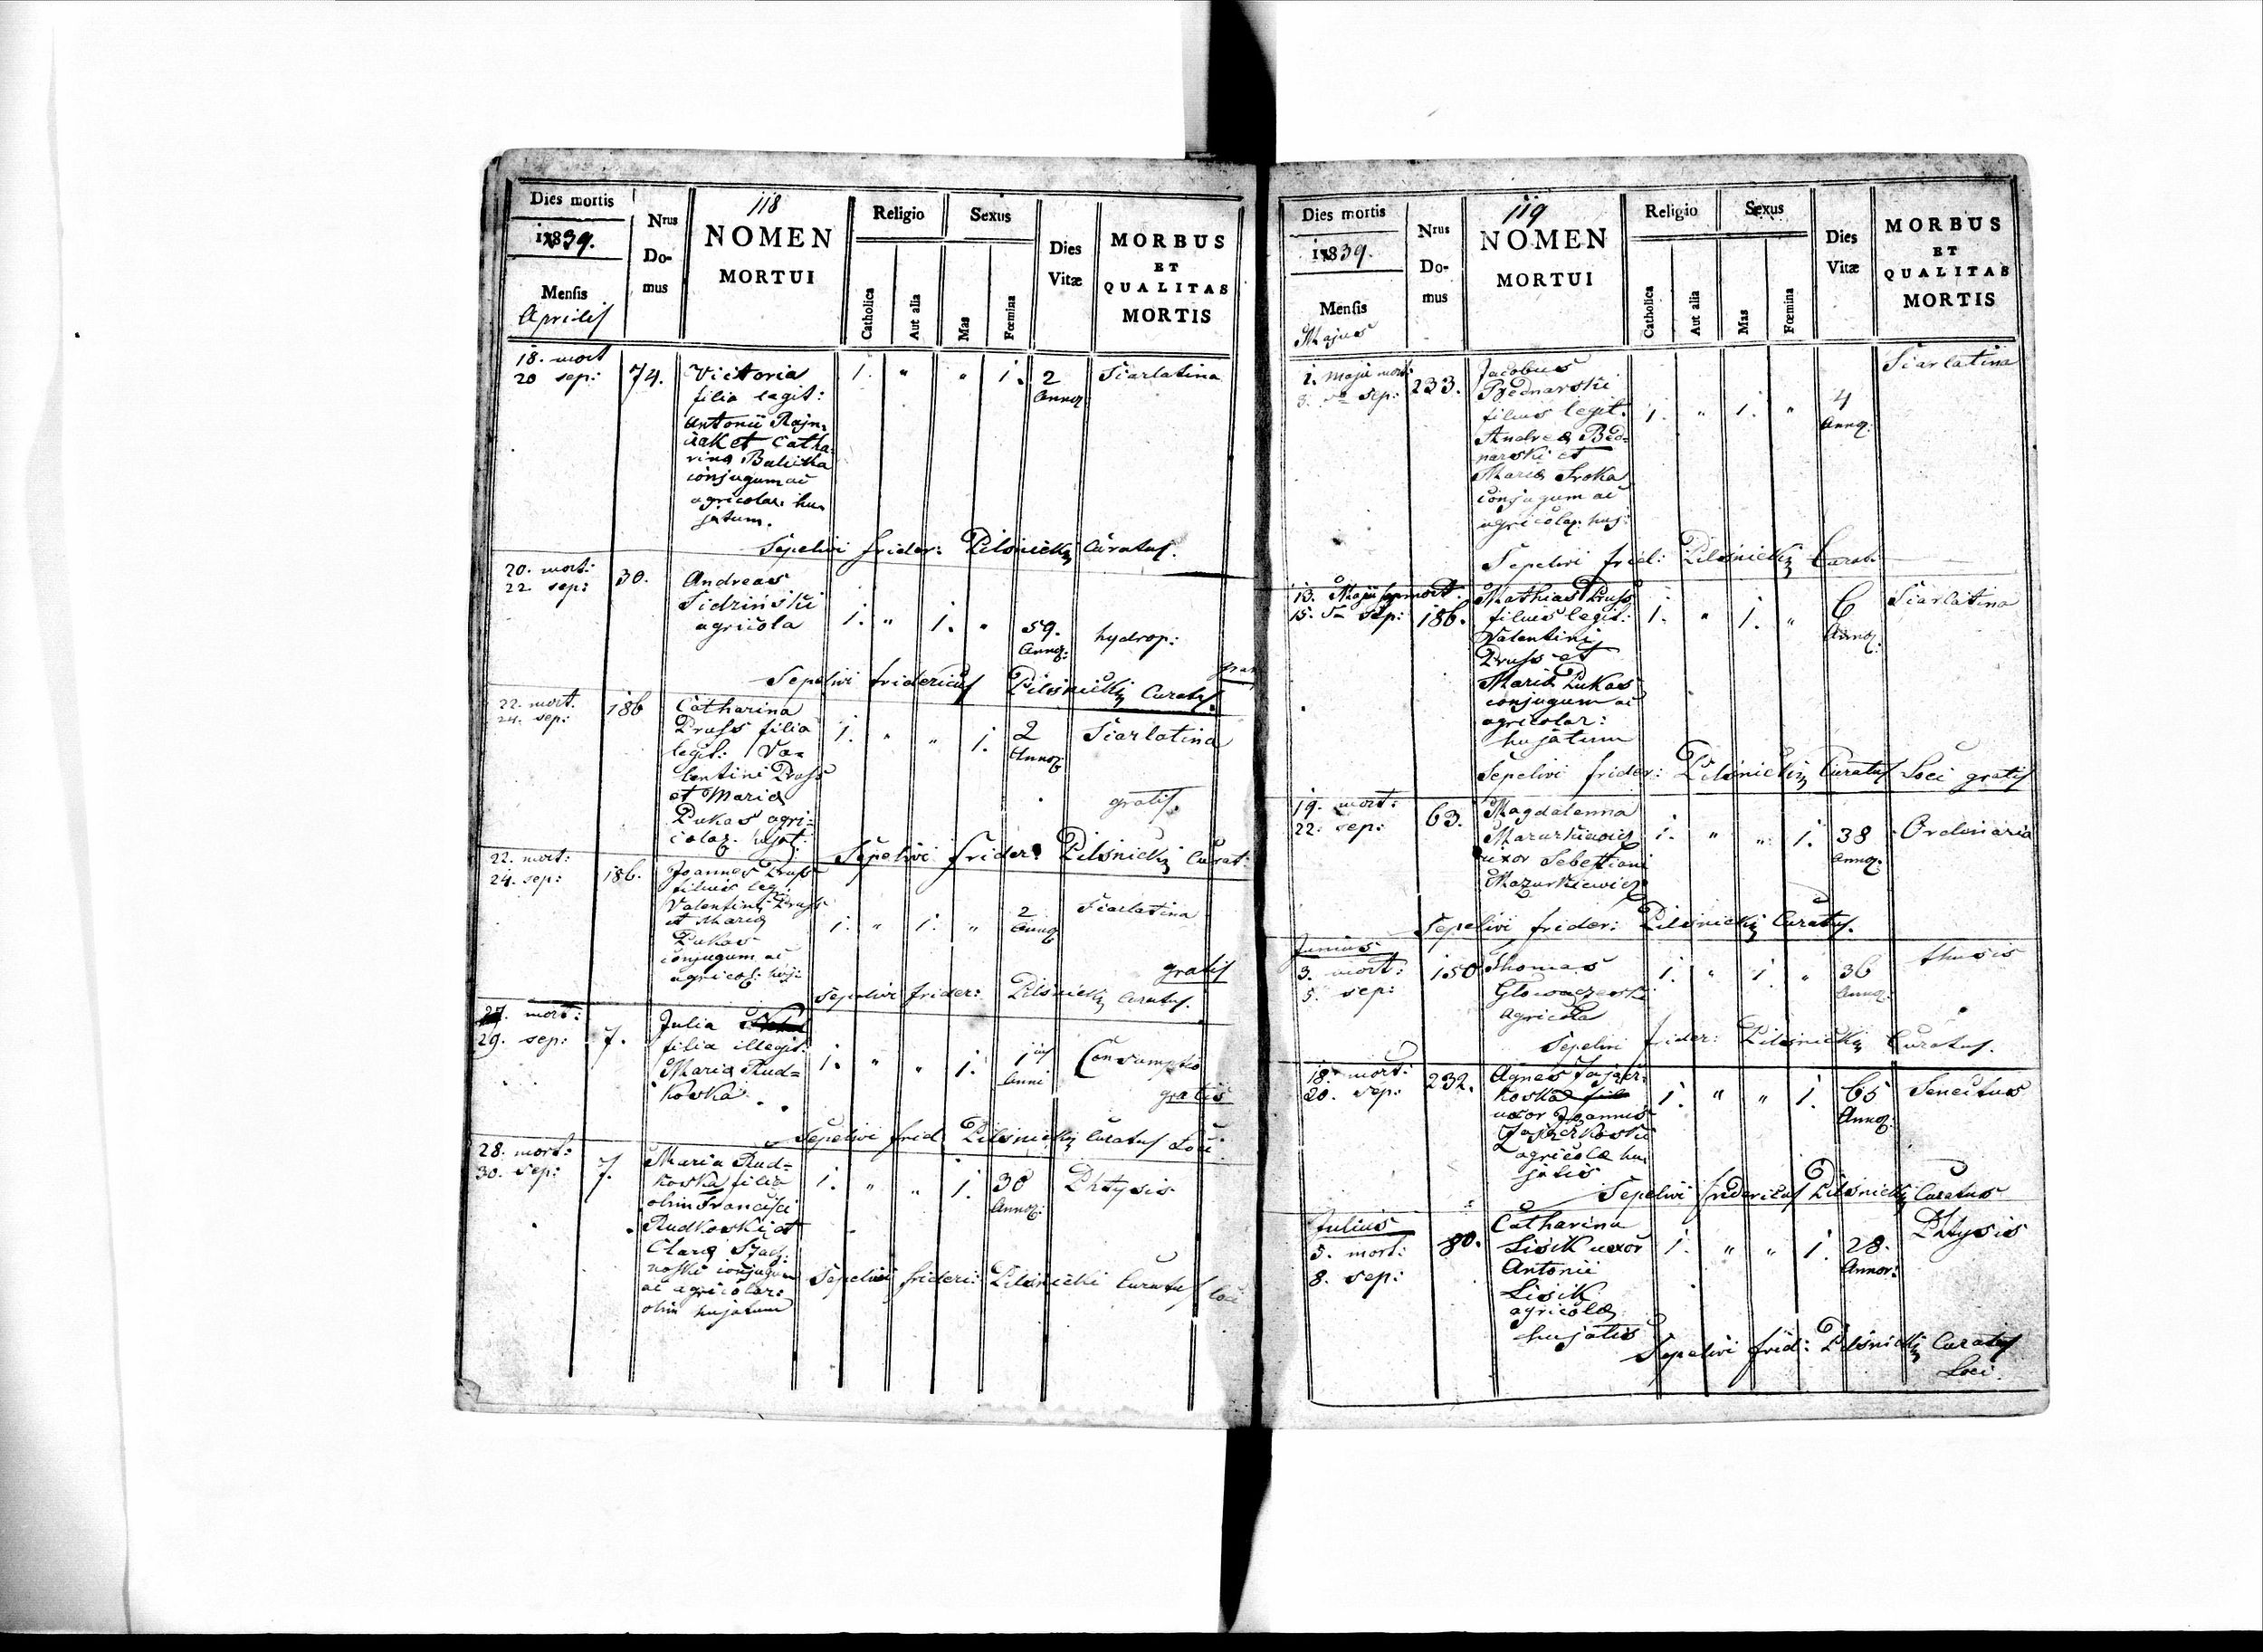 118
Dies mortis
1839.
Mensis
Aprilis
Nrus
Do-
mus
NOMEN
MORTUI
Religio
Catholica
Aut alia
Sexus
Mas
Fœmina
Dies
Vitæ
MORBUS
ET
QUALITAS
MORTIS
18. mort
20 sep: 74. Victoria 1. " " 1. 2 Scarlatina
filia legit: Annor
Antonii Rajn=
czak et Catha
rina Balicka
conjugum ac
agricolar. hu
jatum.
Sepelivi frider: Pilsnicki Curatus.
20. mort:
22 sep: 30. Andreas
Sidziński
agricola 1. " 1. " 59. hydrop:
Annor:
Sepelivi fridericus Pilsnicki Curatus.
22. mort. 186 Catharina
24. sep: Pruss filia 1. " " 1. 2 Scarlatina
legit: Va= Annor:
lentini Pruss
et Maria gratis.
Pukas agri=
colar. hujat:
Sepelivi frider: Pilsnicki Curat:
22. mort:
24. sep: 186. Joannes Pruss
filius leg:
Valentini Pruss
et Maria 1. " 1. " 2 Scarlatina
Pukas Annor
conjugum ac
agricol: huj: gratis
Sepelivi frider: Pilsnicki Curatus.
27. mort: Julia
29. sep: 7. filia illegit:
Maria Rud= 1. " " 1. 1 Consumptio
koska Anni
gratis
Sepelivi frid: Pilsnicki Curatus Loci.
28. mort: 7. Maria Rud=
30. sep: koska filia 1. " " 1. 30 Phtysis
olim Francisci Annor:
Rudkoski et
Clara
noski conjugum
ac agricolar:
olim hujatum
Sepelivi frideri: Pilsnicki Curatus loci
119
Dies mortis
1839.
Mensis
Majus
Nrus
Do-
mus
NOMEN
MORTUI
Religio
Catholica
Aut alia
Sexus
Mas
Fœmina
Dies
Vitæ
MORBUS
ET
QUALITAS
MORTIS
1. Maji mort: 233. Jacobus Scarlatina
3. sep: Bednarski
filius legit. 1. " 1. " 4
Andrea Bed= Annor.
narski et
Maria Sroka
conjugum ac
agricolar. huj:
Sepelivi frid: Pilsnicki Curat:
13. Maji mort: Mathias Pruss Scarlatina
15. sep: 186. filius legit: 1. " 1. " 6
Valentini Annor.
Pruss et
Maria Pukas
conjugum ac
agricolar:
hujatum
Sepelivi frider: Pilsnicki Curatus Loci gratis
19. mort: 63. Magdalenna
22. sep: Mazurkiewicz 1. " " 1. 38 Ordinaria
uxor Sebestiani Annor.
Mazurkiewicz
Sepelivi frider: Pilsnicki Curatus.
Junius
3. mort: 150 Thomas 1. " 1. " 36 thusis
5. sep: Glowaczeoski Annor.
agricola
Sepelivi frider: Pilsnicki Curatus.
18. mort: 232. Agnes Jajacz=
20. sep: koska 1. " " 1. 65 Senectus
uxor Joannis Annor.
Jajaczkoski
agricolæ hu
jatis
Sepelivi fridericus Pilsnicki Curatus
Julius 80. Catharina Phtysis
5. mort: Lisik uxor 1. " " 1. 28.
8. sep: Antonii Annor:
Lisik
agricolæ
hujatis
Sepelivi frid: Pilsnicki Curatus
Loci.